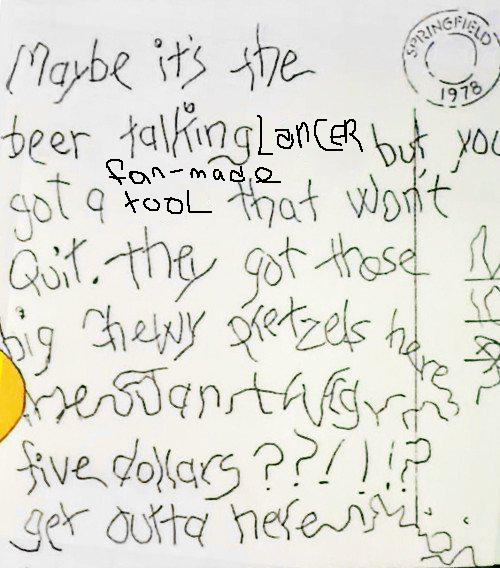 SPRINGFIELD
1978
Maybe it's the
beer talking LANCER but you
got a fan-made tooL that won't
Quit. they got those
big chewy pretzels here
five dollars??!!!?
get outta here